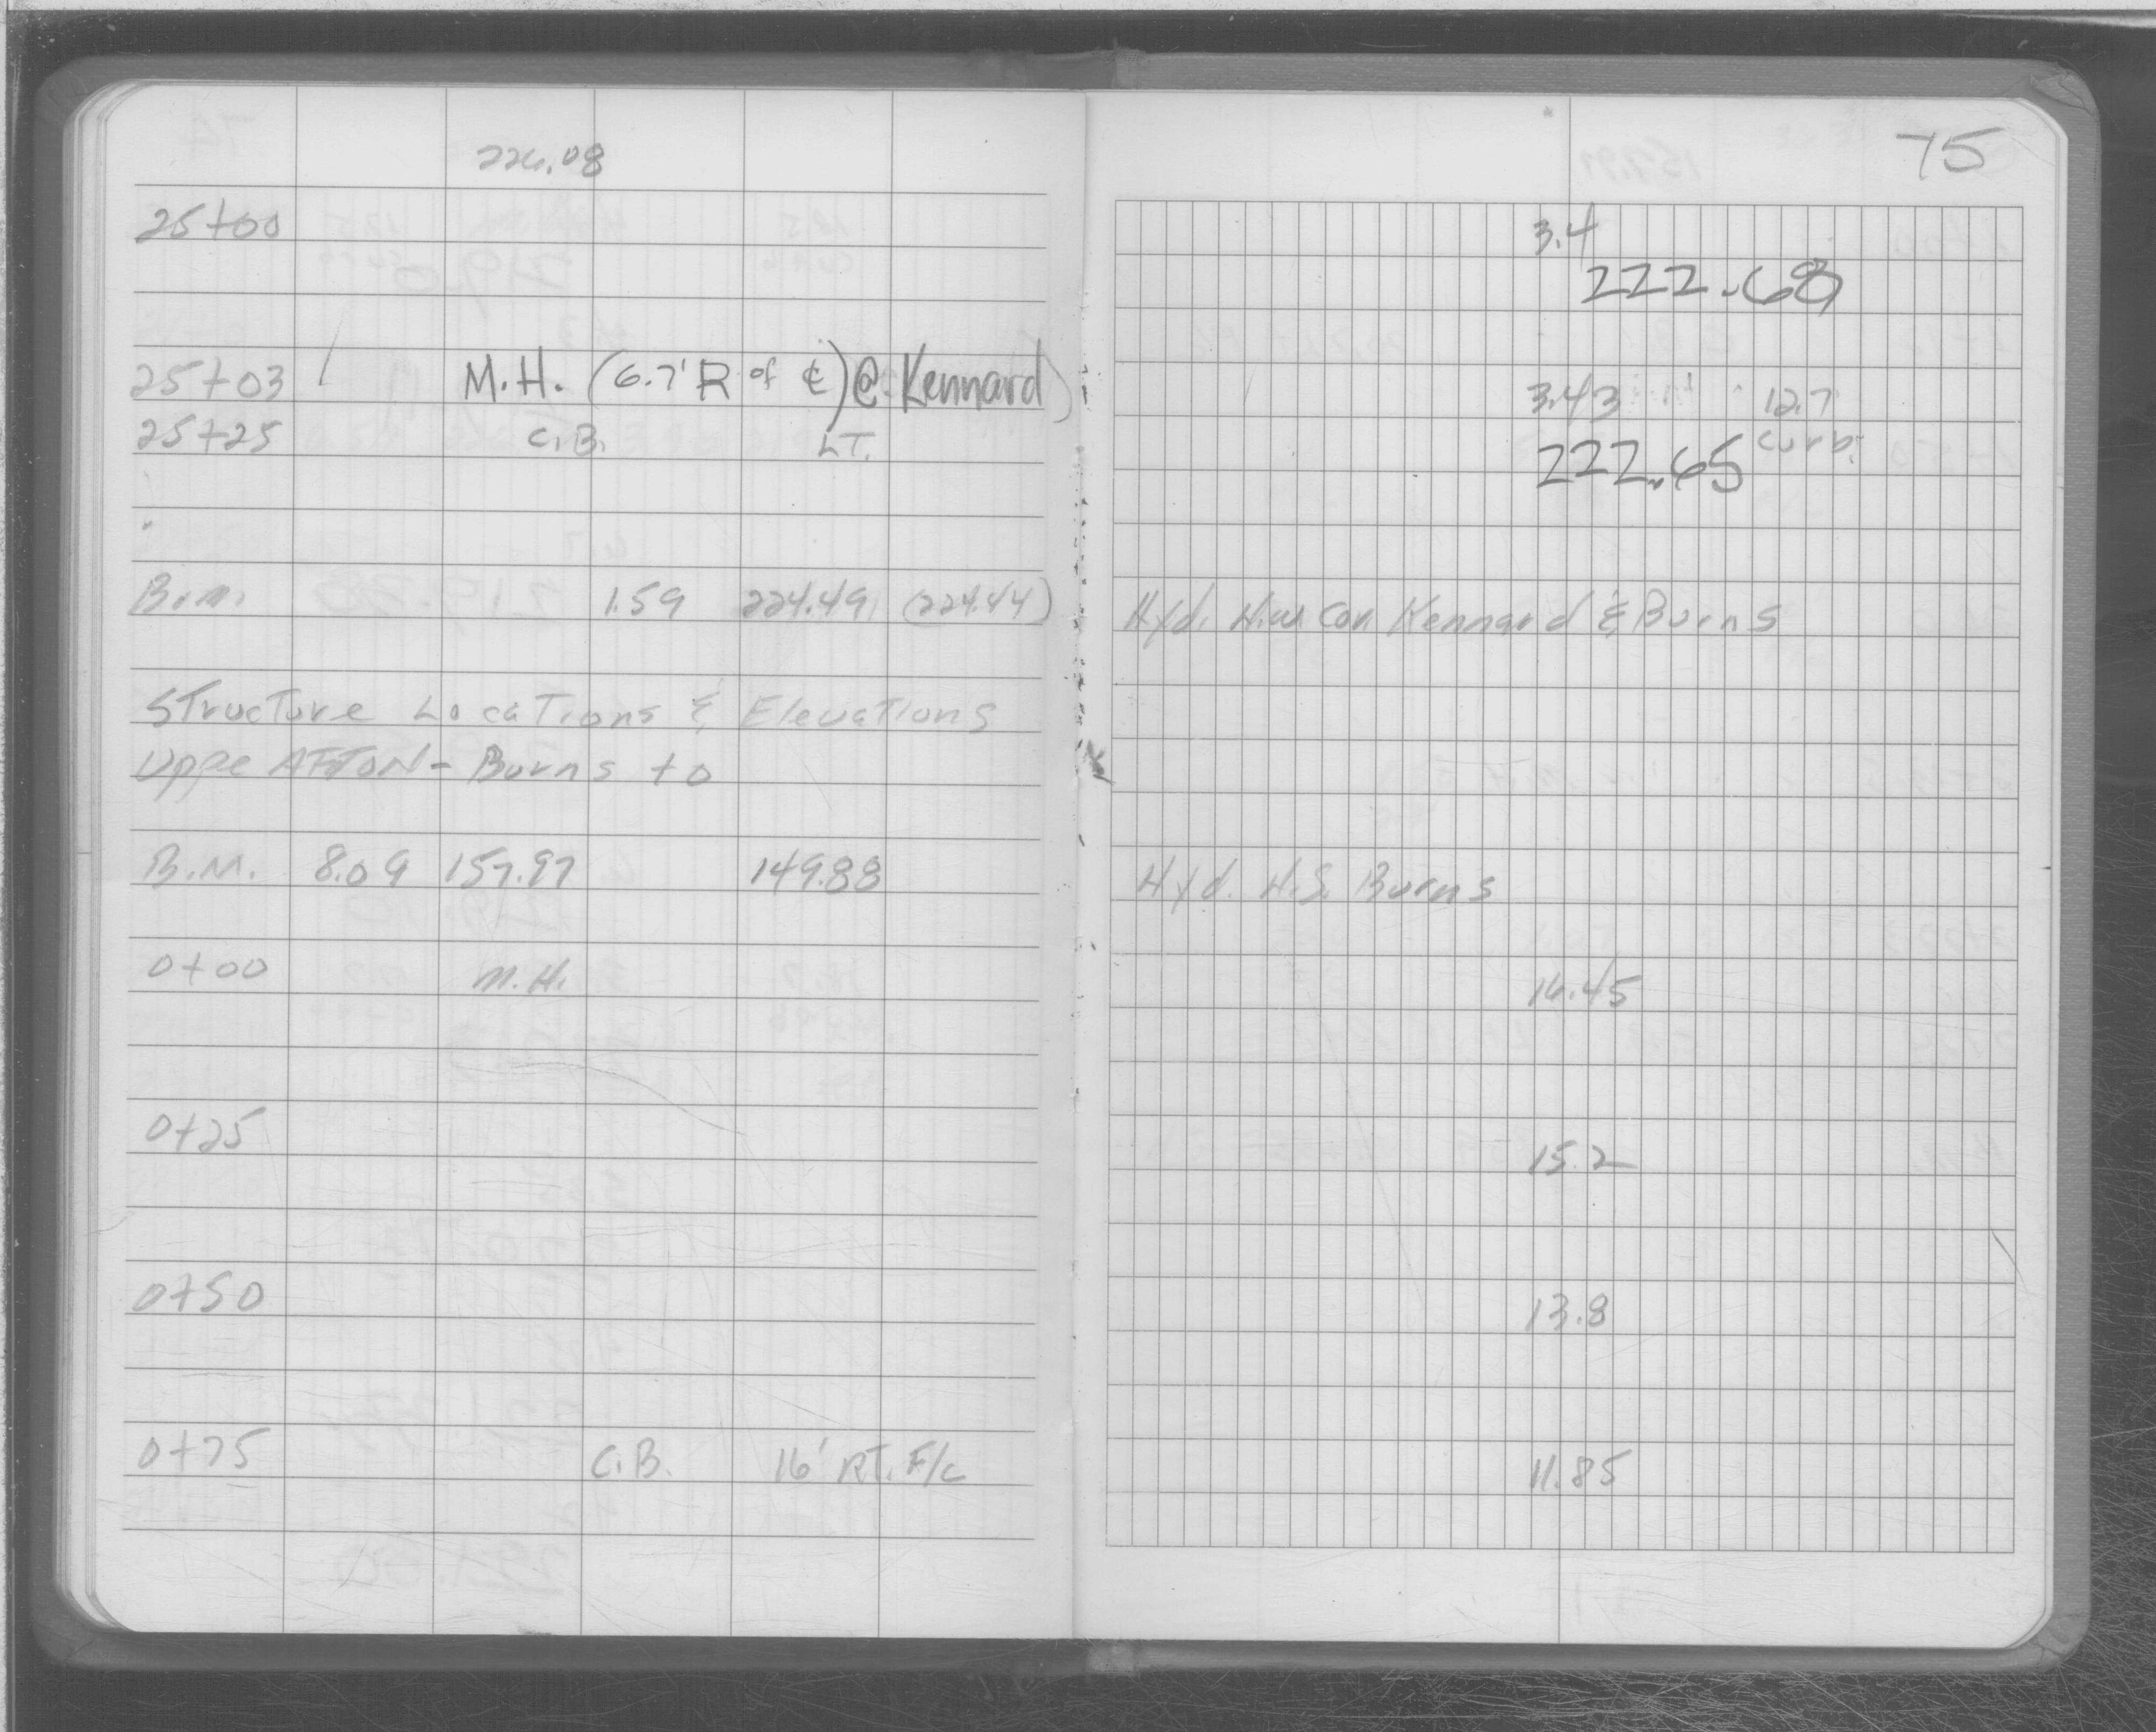 226.08
75
25+00
3.4
222.68
25+03 M.H. (6.7' R of ℄) @ Kennard
3.43 12.7
25+25 C.B. LT.
curb
222.65
B.M. 1.59 224.49 (224.44) Hyd. N.W. Cor. Kennard & Burns
Structure Locations & Elevations
Uppe AFTON - Burns to
B.M. 8.09 157.97 149.88 Hyd. N.S. Burns
0+00 M.H. 16.45
0+25 15.2
0+50 13.8
0+75 C.B. 16' RT. F/c 11.85